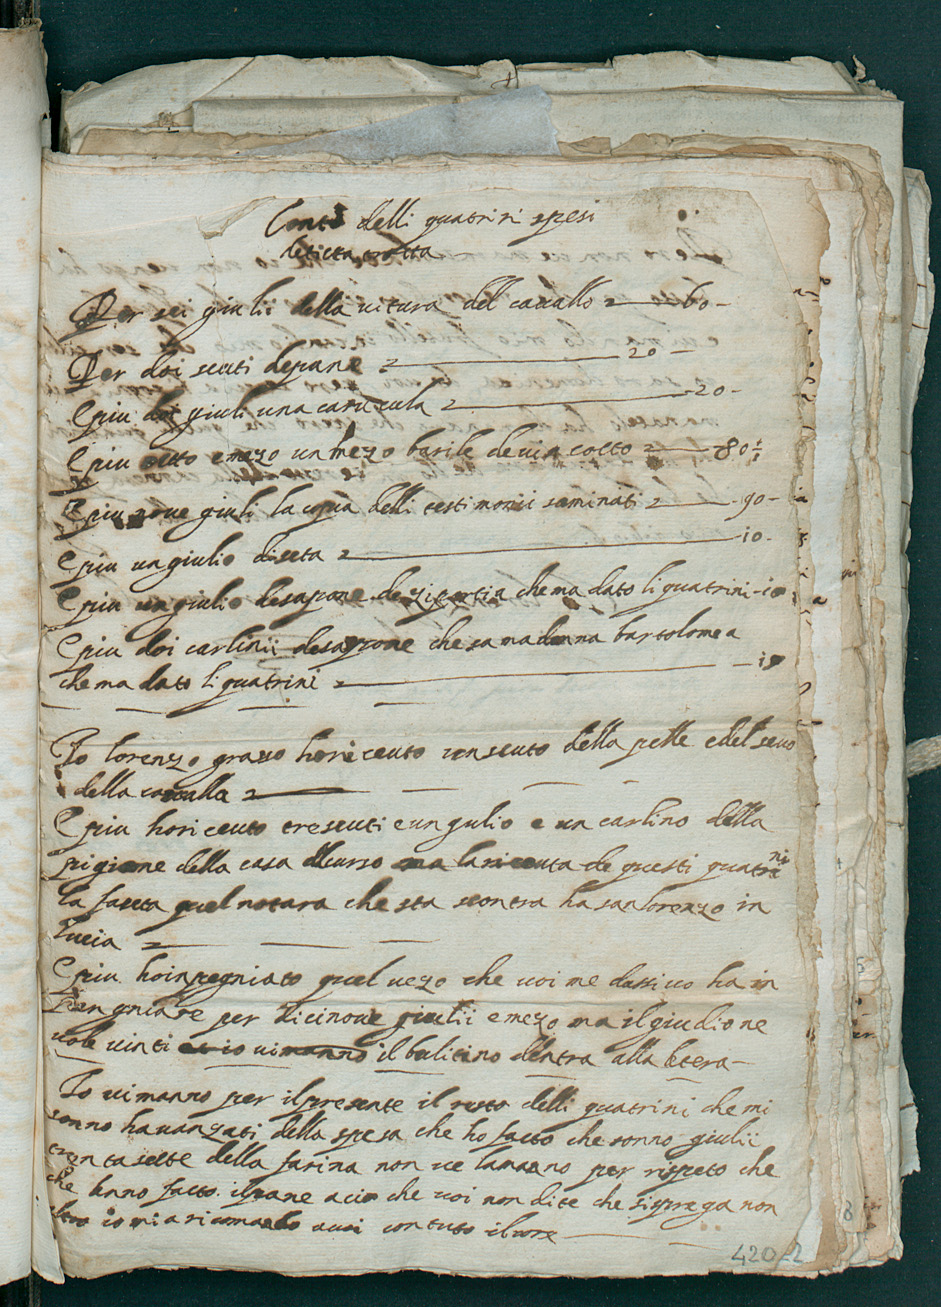 Conto delli quatrini spesi
Per sei giulii della vitura del cavallo 60 -
Per doi scuti depane 20 -
E piu doi giuli una 20 -
E piu otto emezo un mezo barile devin cotto 80
E piu nove giuli la delli testimonii saminati 90 -
E piu un giulio diseta 10 -
E piu un giulio desapone de che ma dato li quatrini - 10
E piu doi carlinii desapone che sa madonna bartolomea
che ma dato li quatrini
Io lorenzo grasso ho un scuto della pelle edel sevo
della cavalla
E piu ho tre scuti e un gulio e un carlino della
pigione della casa ma la de questi quatrini
la faceta quel notara che sta scontra ha san lorenzo in
lucia
E piu hoinpegniato quel vezo che voi me dassivo ha in
pengniare per dicinove giulii emezo ma il giudio ne
vole vinti il bulitino dentra alla letera -
Io vi manno per il presente il resto delli quatrini che mi
sonno havanzati della spesa che ho facto che sonno giulii
trentasette della farina non ve la manno per rispeto che
che anno facto il pane acio che voi non dite che si prega non
altro io mi a ricomando a voi con tuto il core
420-2